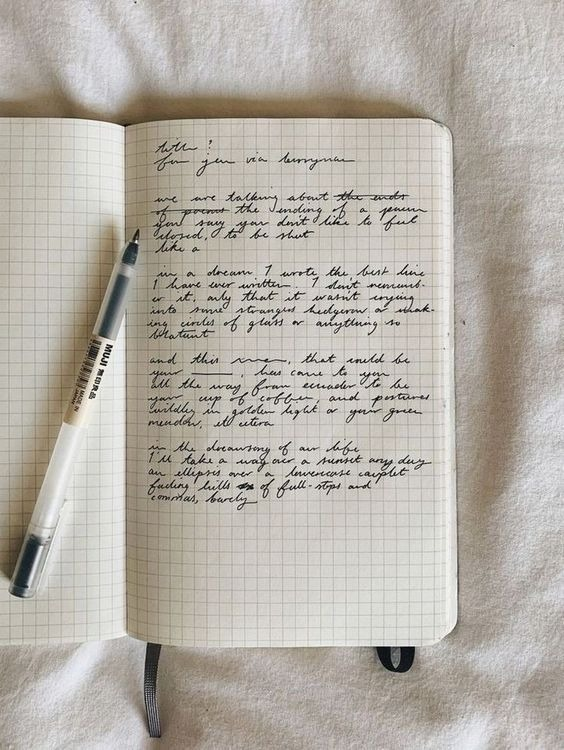 for you via berryman
we are talking about the ends
of poems the ending of a poem
you say you don't like to feel
closed, to be shut
like a
in a dream I wrote the best line
I have ever written. I don't rememb-
er it, only that it wasn't crying
into some strangers hedgerow or mak-
ing circles of glass or anything so
blatant
and this, that could be
your ____, has come to you
all the way from ecuador to be
your cup of coffee, and postures
wildly in golden light or your green
meadow, et cetera
in the dreamsong of our life
I'll take a way over a sunset any day
an ellipsis over a lowercase couplet
fading hills of full-stops and
commas, barely
MUJI 無印良品
MADE IN JAPAN